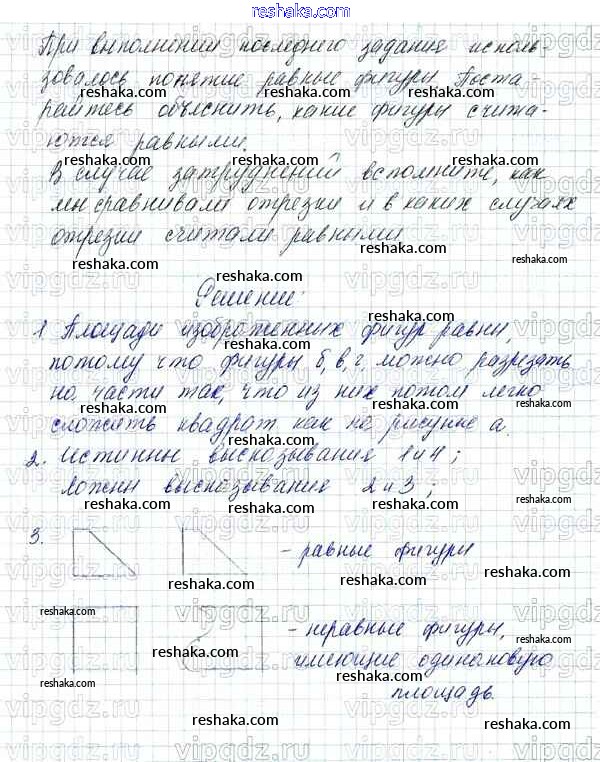 reshaka.com
При выполнении последнего задания исполь-
зовалось понятие равные фигуры. Поста-
райтесь объяснить, какие фигуры счита-
ются равными.
В случае затруднений вспомните, как
мы сравнивали отрезки и в каких случаях
отрезки считали равными
Решение:
1 Площади изображенных фигур равны,
потому что фигуры б, в, г можно разрезать
на части так, что из них потом легко
сложить квадрат как на рисунке а.
2. Истинны высказывания 1 и 4;
ложны высказывания 2 и 3;
3. - равные фигуры
- неравные фигуры,
имеющие одинаковую
площадь.